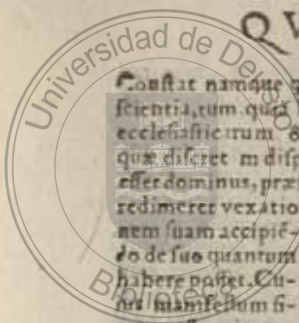 QV
Universidad de Deusto
Constat namque
scientia, tum quia
ecclesiasticarum &
quæ disceret in disc
esset dominus, præ
redimeret vexatio
nem suam accipiē-
do de suo quantum
habere posset. Cu-
ius manifestum si-
Biblioteca